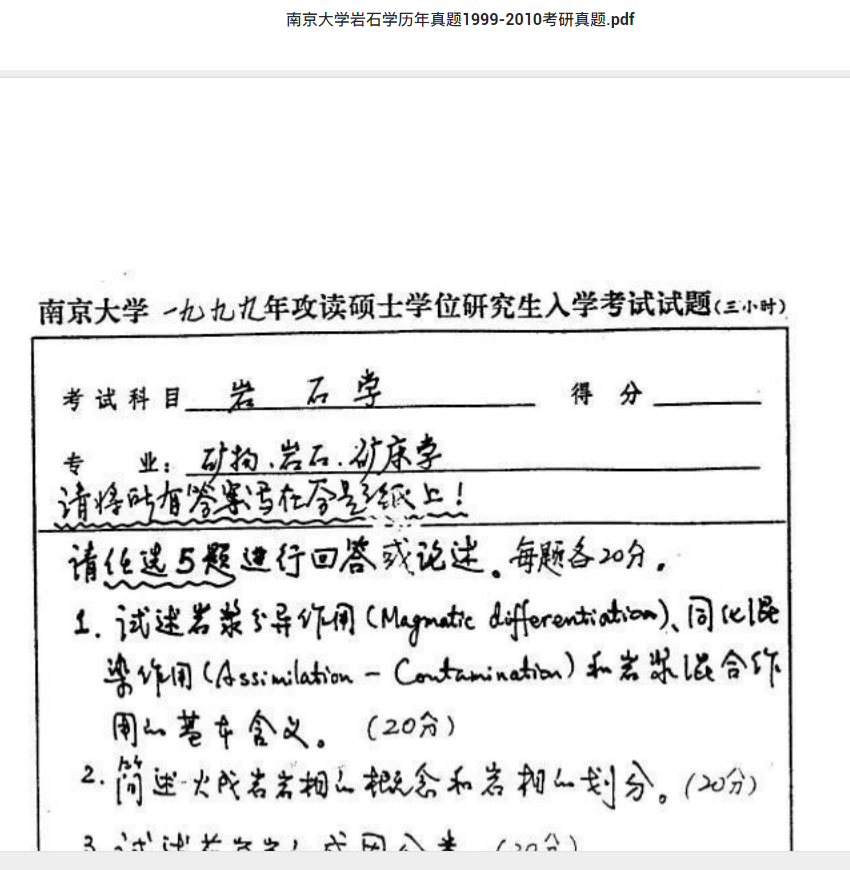 南京大学岩石学历年真题1999-2010考研真题.pdf
南京大学一九九九年攻读硕士学位研究生入学考试试题(三小时)
考试科目 岩石学 得分
专业：矿物、岩石、矿床学
请将所有答案写在答题纸上！
请任选5题进行回答或论述。每题各20分。
1. 试述岩浆分异作用(Magmatic differentiation)、同化混
染作用(Assimilation - Contamination)和岩浆混合作
用的基本含义。(20分)
2. 简述火成岩岩相的概念和岩相的划分。(20分)
3. 试述